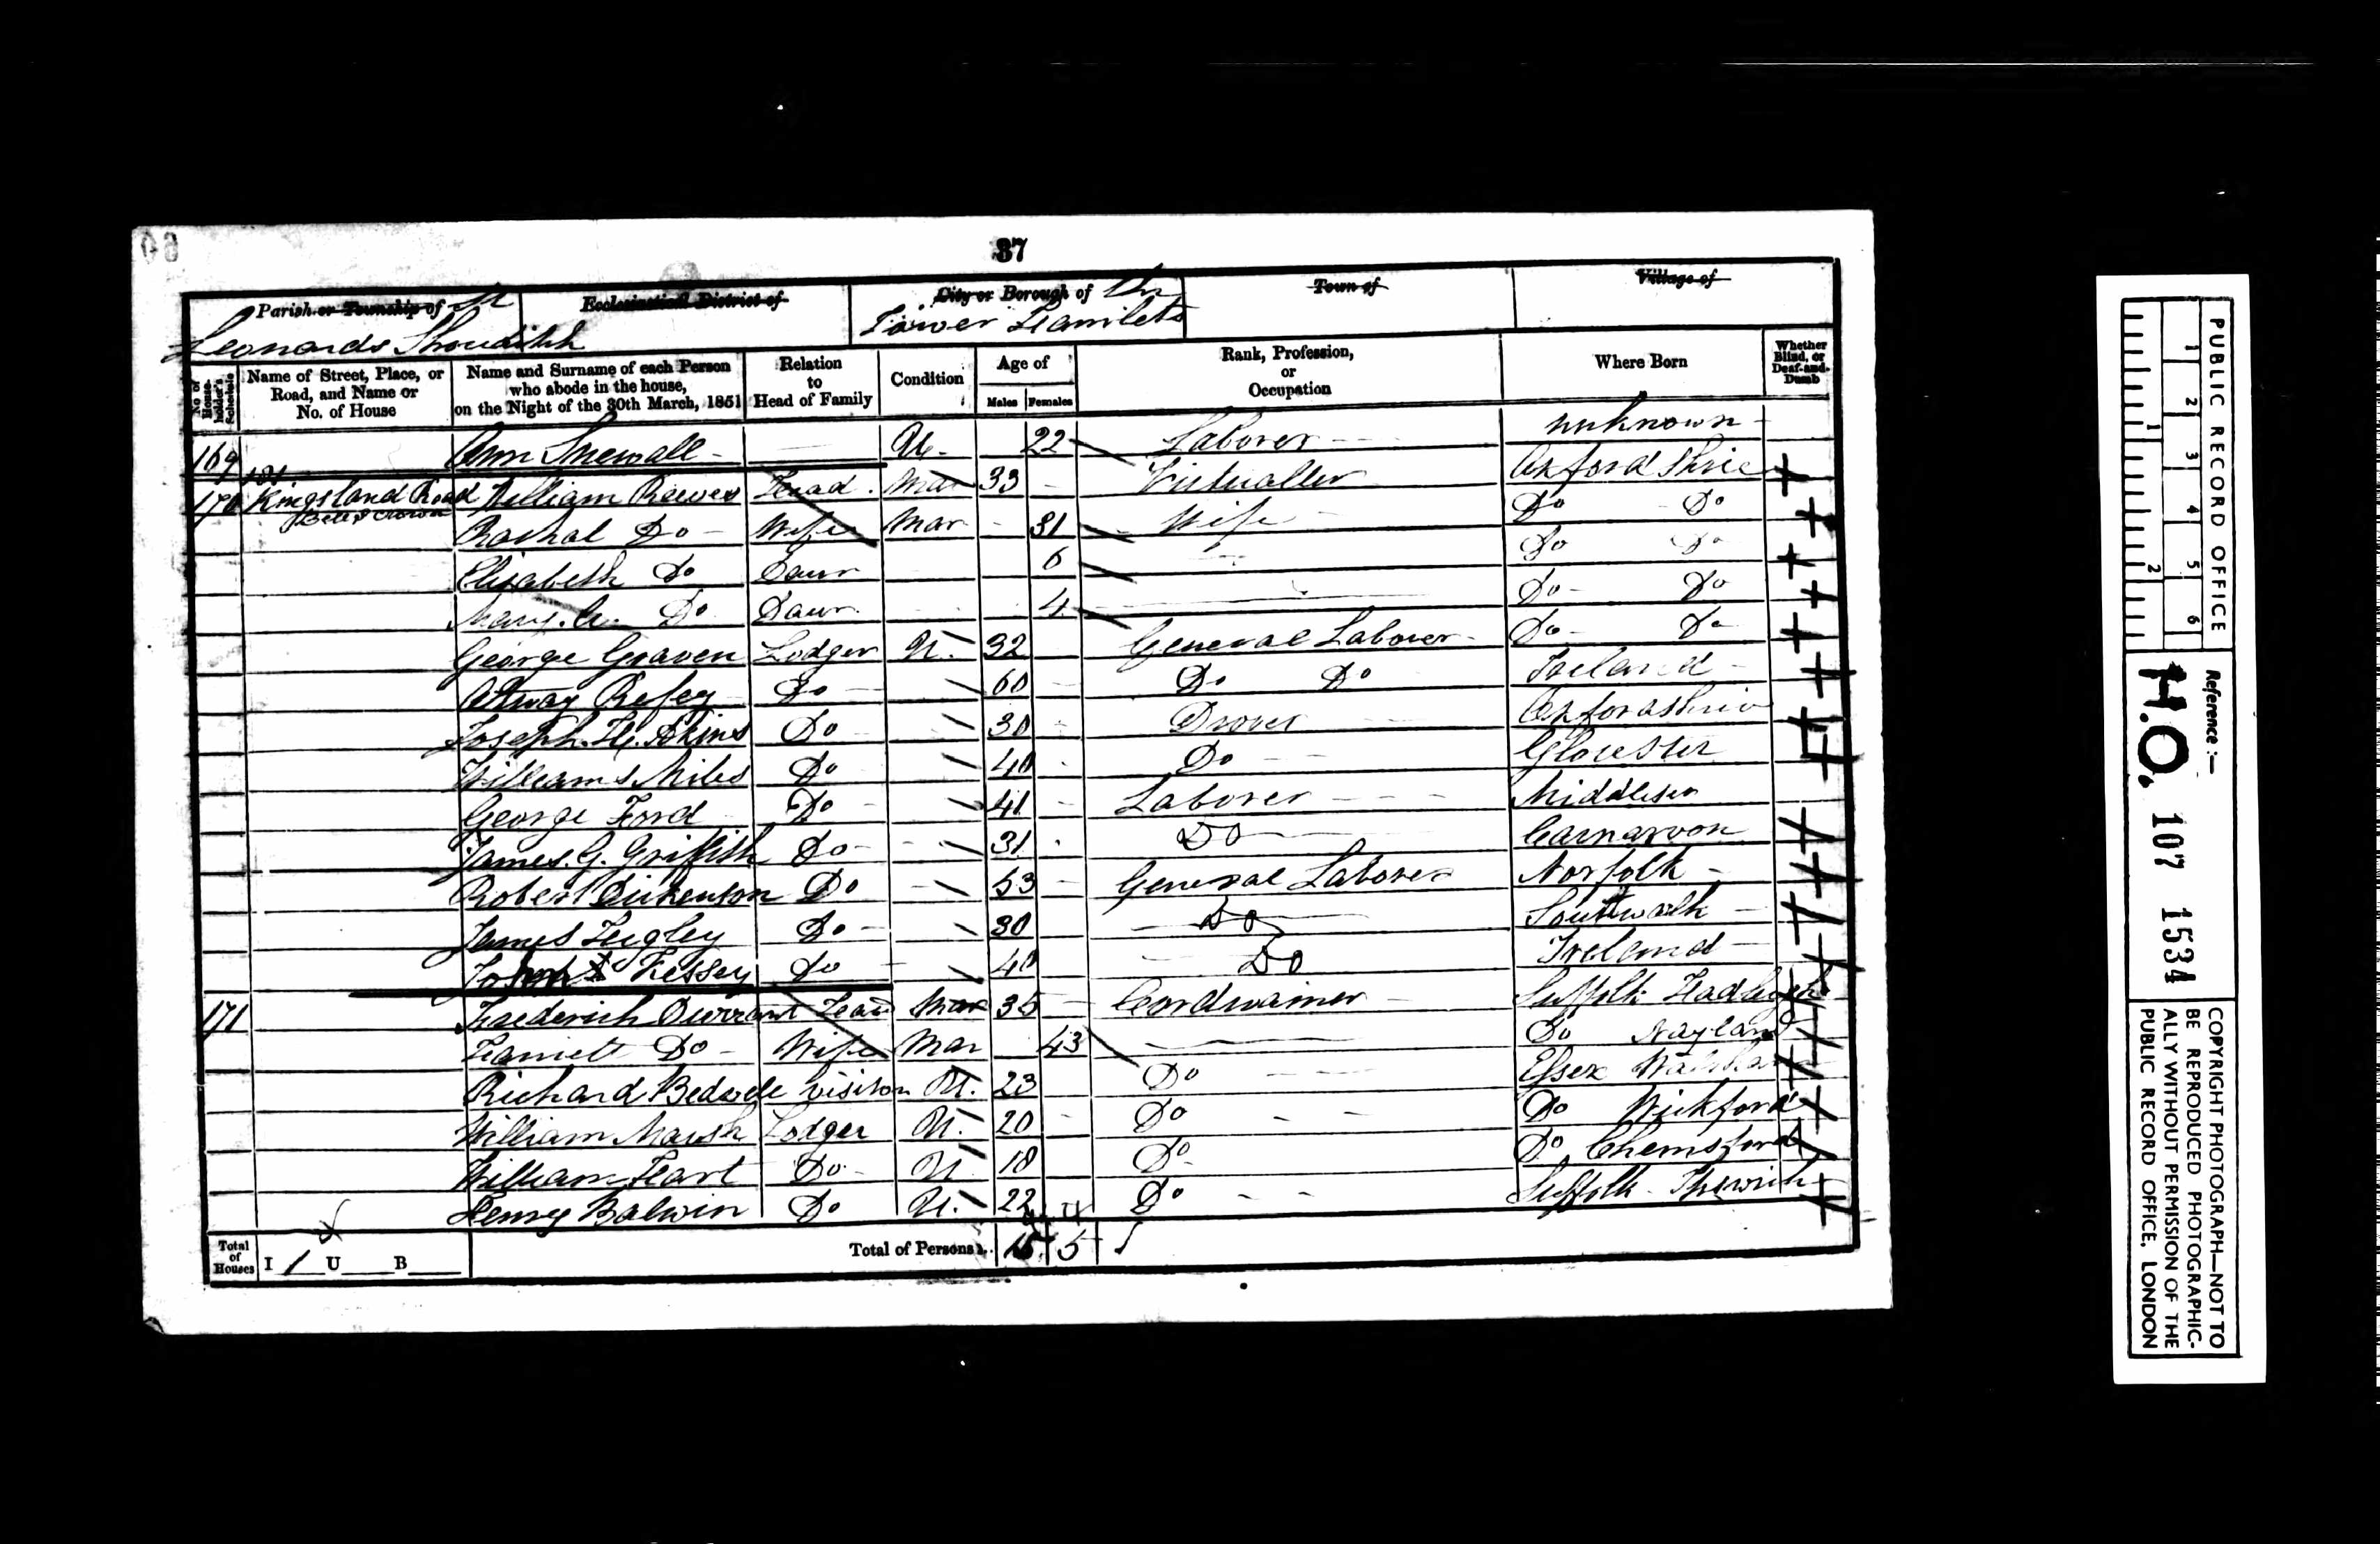 37
Parish or Township of St
Leonards Shoreditch
Ecclesiastical District of
City or Borough of the
Tower Hamlets
Town of
Village of
No. of House-holder's Schedule
Name of Street, Place, or Road, and Name or No. of House
Name and Surname of each Person who abode in the house, on the Night of the 30th March, 1851
Relation to Head of Family
Condition
Age of
Males Females
Rank, Profession, or Occupation
Where Born
Whether Blind, or Deaf-and-Dumb
169 Ann U. 22 Laborer unknown
170 Kingsland Road William Reeves Head Mar 33 Victualler Oxford Shire
Bell & Crown Rachal Do Wife Mar 31 Wife Do Do
Elizabeth Do Daur 6 Do Do
Mary. A. Do Daur 4 Do Do
George Graven Lodger U. 32 General Laborer Do Do
Do 60 Do Do Ireland
Joseph Do 30 Drover Oxfordshire
William Miles Do 40 Do Glocester
George Ford Do 41 Laborer Middlesex
James. G. Griffith Do 31 Do Carnarvon
Robert Dickenson Do 53 General Laborer Norfolk
James Do 30 Do Southwark
John Do 40 Do Ireland
171 Frederick Durrant Head Mar 35 Cordwainer Suffolk Hadleigh
Harriett Do Wife Mar 43 Do Nayland
Richard Bedwell visitor U. 23 Do Essex
William Marsh Lodger U. 20 Do Do Wickford
William Hart Do U 18 Do Do Chemsford
Henry Balwin Do U. 22 Do Suffolk Ipswich
Total of Houses I 1 U B
Total of Persons 15 5
PUBLIC RECORD OFFICE
1 2 3 4 5 6
1 2
Reference :—
H.O. 107 1534
COPYRIGHT PHOTOGRAPH—NOT TO
BE REPRODUCED PHOTOGRAPHIC-
ALLY WITHOUT PERMISSION OF THE
PUBLIC RECORD OFFICE, LONDON